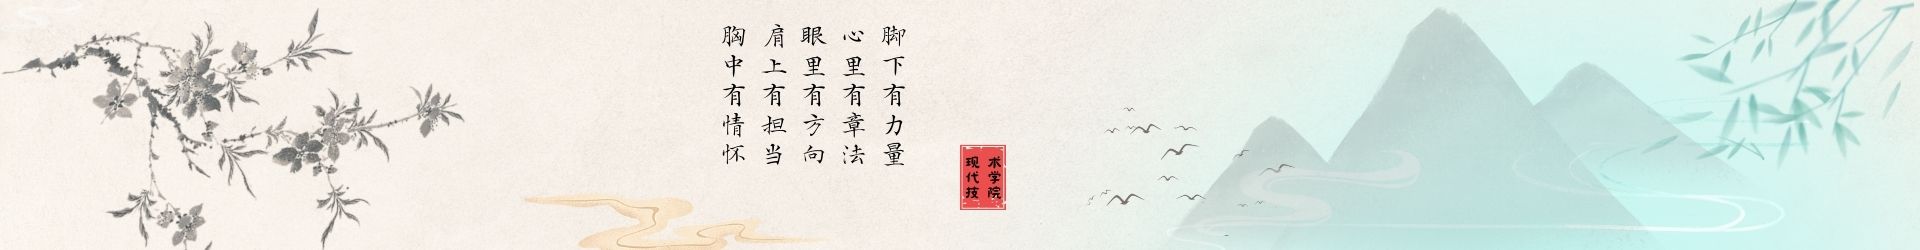 胸中有情怀
肩上有担当
眼里有方向
心里有章法
脚下有力量
现代技
术学院